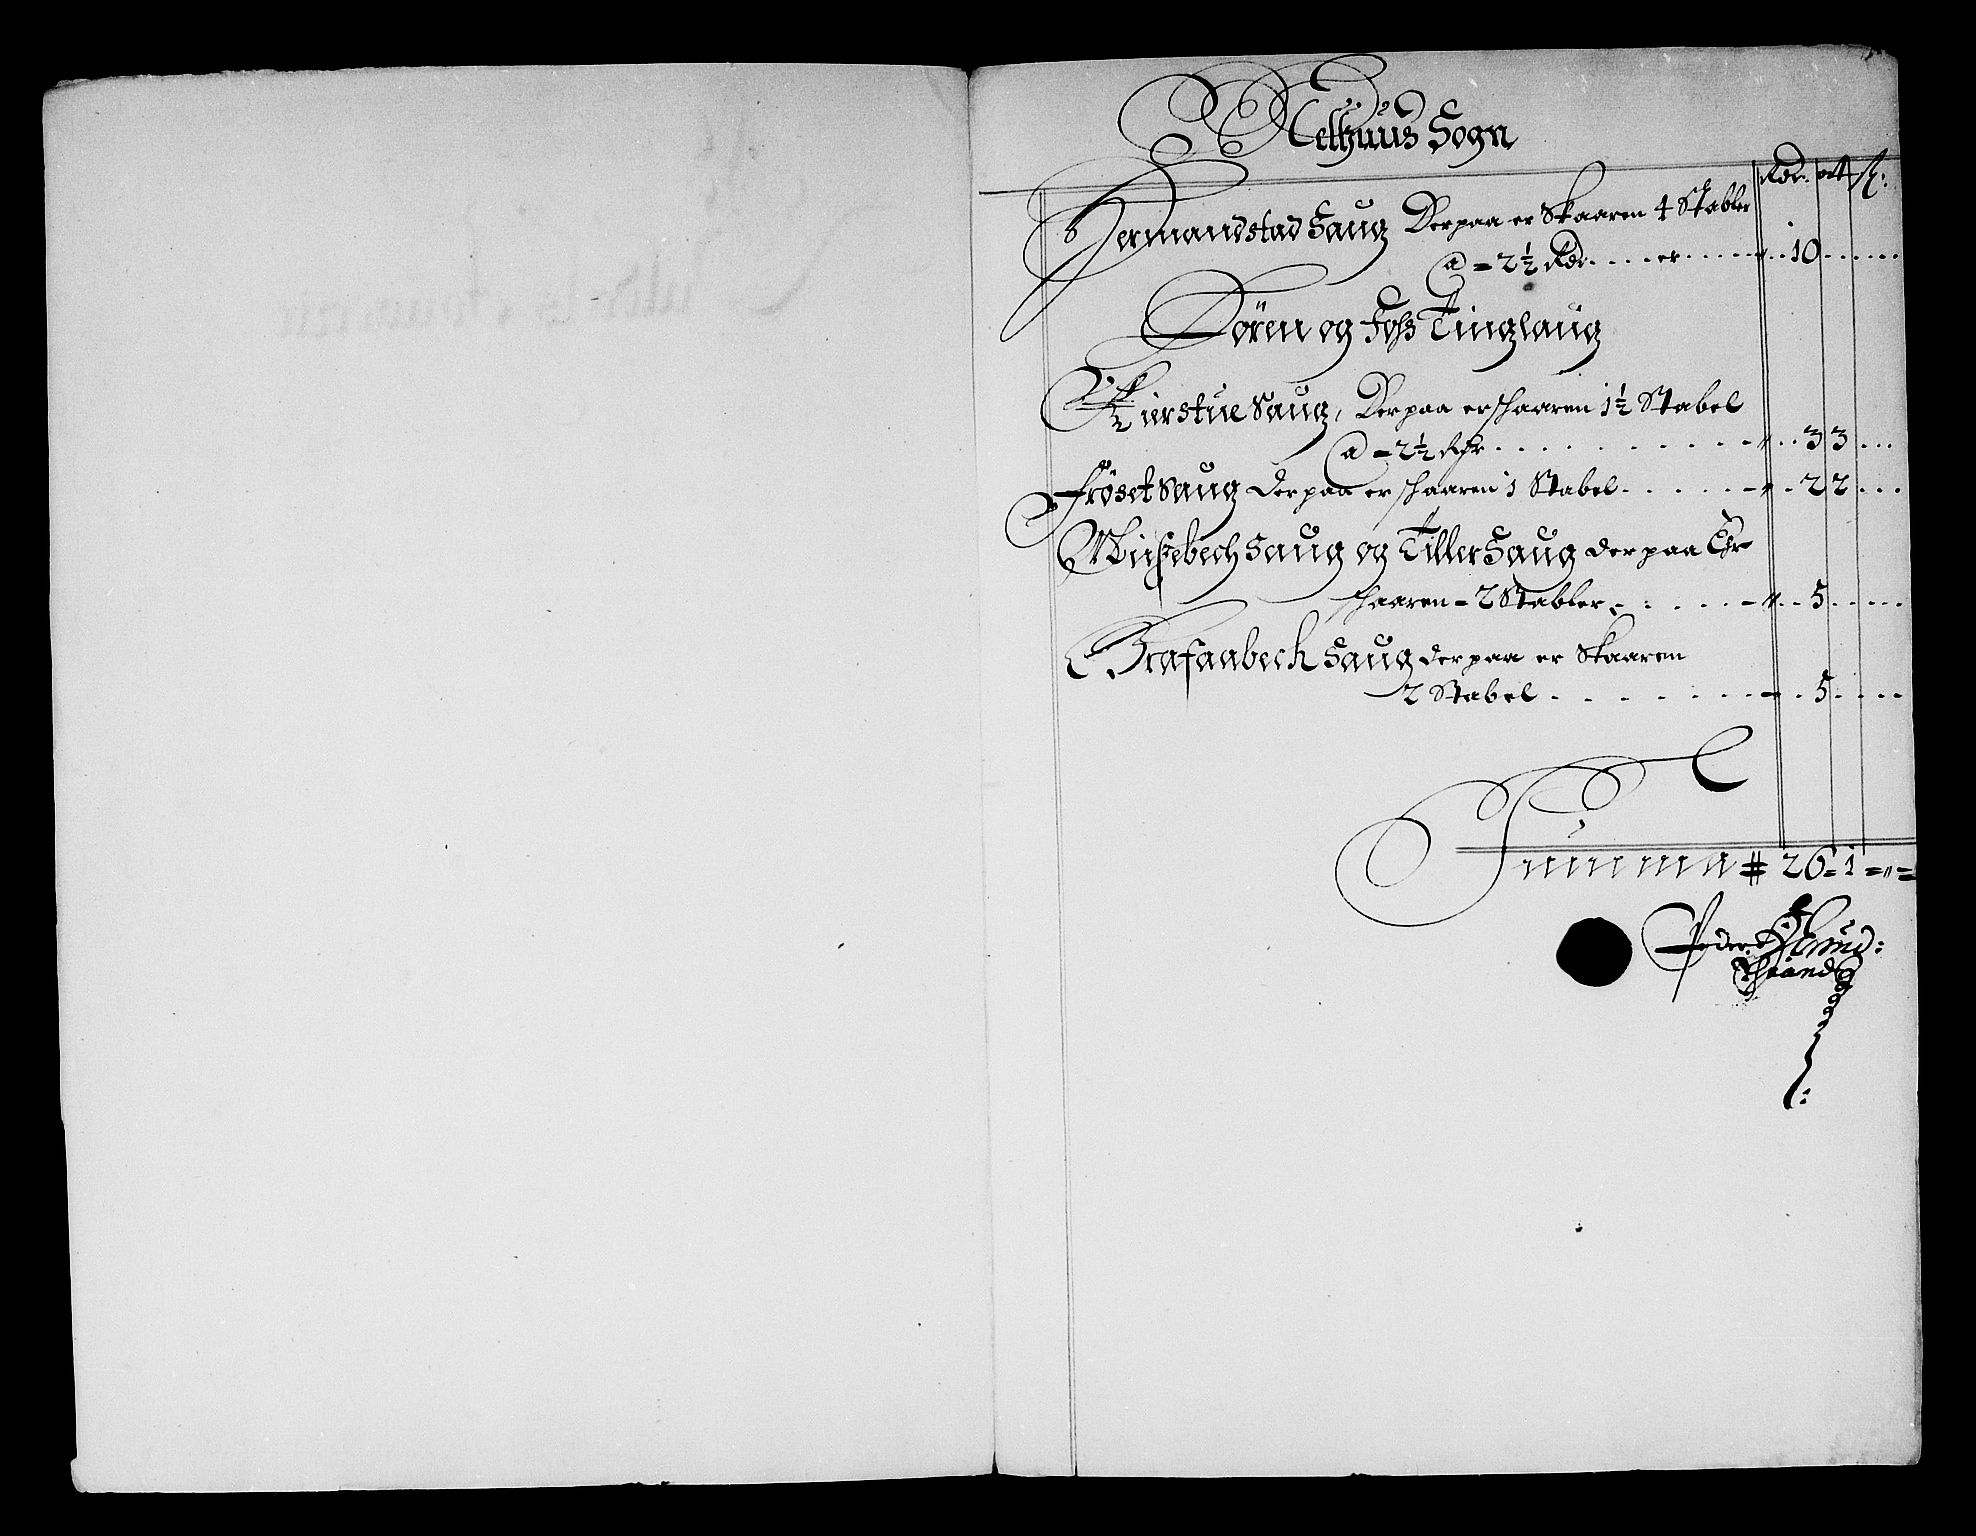 Melhuus Sogn
Rdr. ort ſk:
Hermandstad Saug Derpaa er Skaaren 4 Stabler
a = 2½ Rdr. . . . er . . . . . . 10 . . . . .
Børsen og Foss Tinglaug
Kierstue Saug, Derpaa er schaaren 1½ Stabel
a = 2½ Rdr . . . . . . . . . . 3 3 . . .
Frøset Saug derpaa er schaaren 1 Stabel . . . . . . . 2 2 . . .
saug og Tiller Saug derpaa Er
schaaren = 2 Stabler . . . . . . . . 5 . . . . .
saug derpaa er Skaaren
2 Stabel . . . . . . . . . 5 . . . .
Summa # 26 = 1 = „ =
Peder